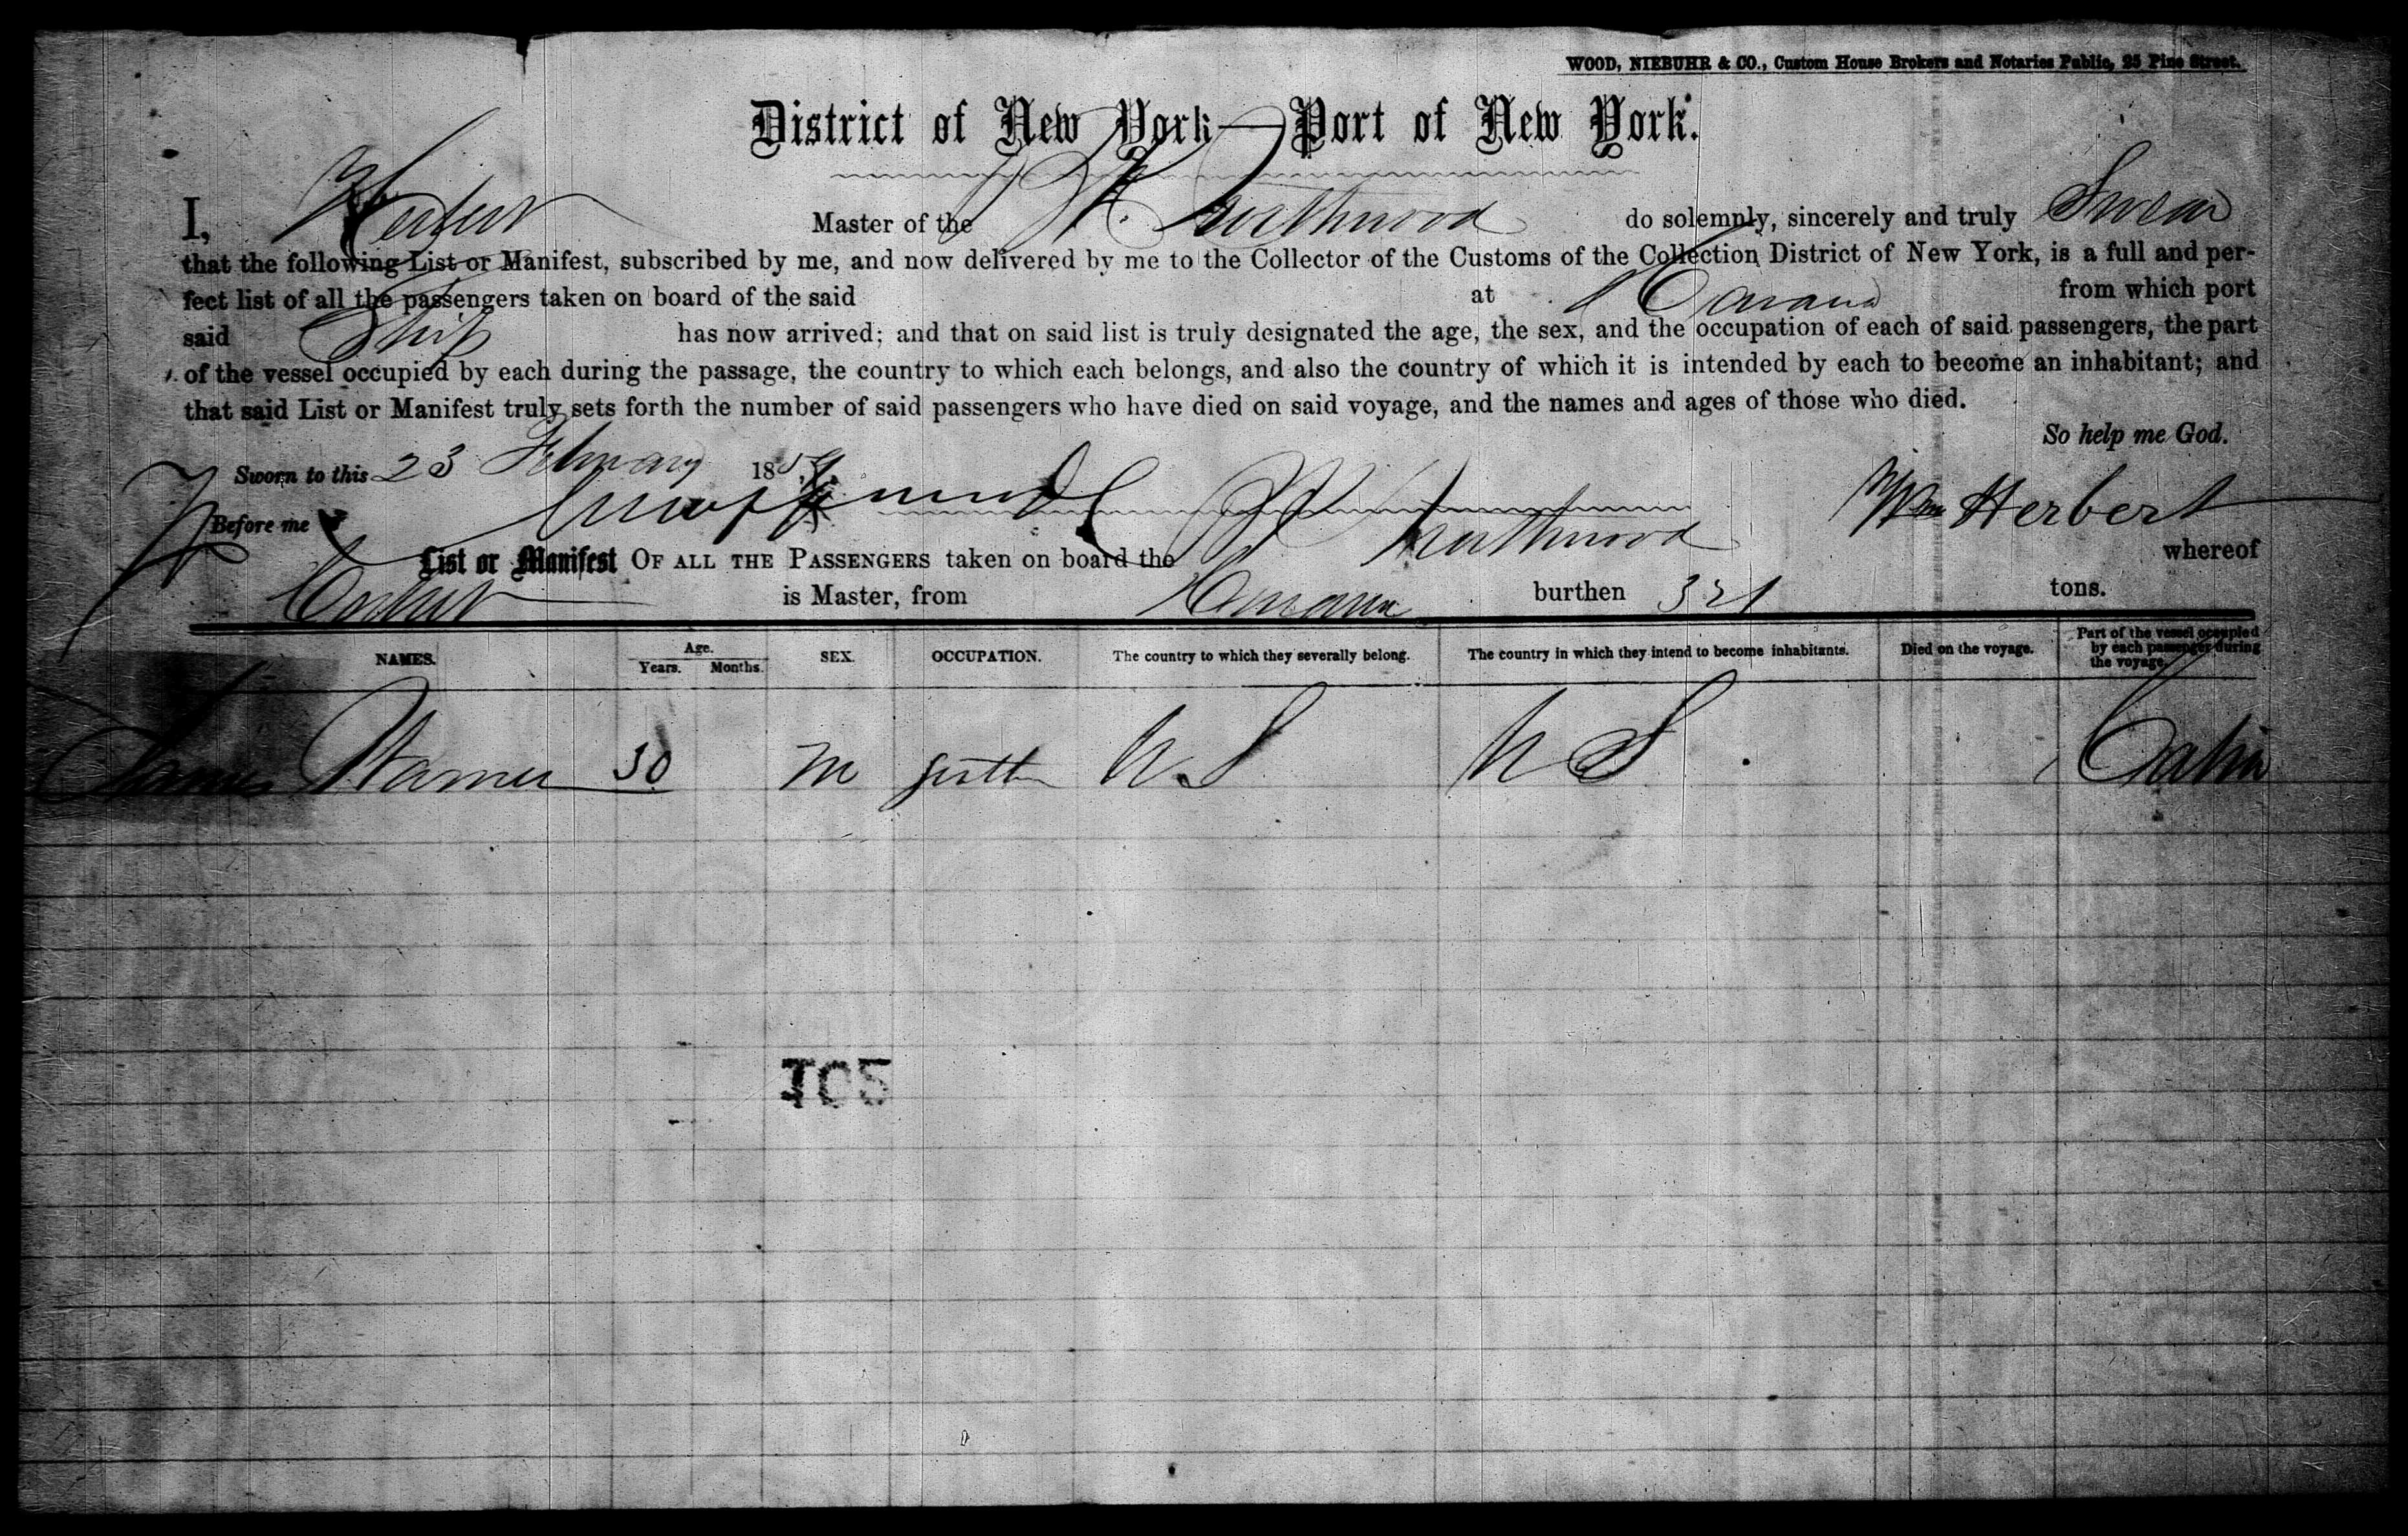 WOOD, NIEBUHR & CO., Custom House Brokers and Notaries Public, 25 Pine Street.
District of New York—Port of New York.
I, Herbert Master of the do solemnly, sincerely and truly Swear
that the following List or Manifest, subscribed by me, and now delivered by me to the Collector of the Customs of the Collection District of New York, is a full and per-
fect list of all the passengers taken on board of the said at Havana from which port
said Ship has now arrived; and that on said list is truly designated the age, the sex, and the occupation of each of said passengers, the part
of the vessel occupied by each during the passage, the country to which each belongs, and also the country of which it is intended by each to become an inhabitant; and
that said List or Manifest truly sets forth the number of said passengers who have died on said voyage, and the names and ages of those who died.
So help me God.
Sworn to this 23 February 1859
Before me Wm Herbert
List or Manifest OF ALL THE PASSENGERS taken on board the whereof
Herbert is Master, from Havana burthen 321 tons.
NAMES. Age. Years. Months. SEX. OCCUPATION. The country to which they severally belong. The country in which they intend to become inhabitants. Died on the voyage. Part of the vessel occupied by each passenger during the voyage.
James Warner 30 M U S U S Cabin
105